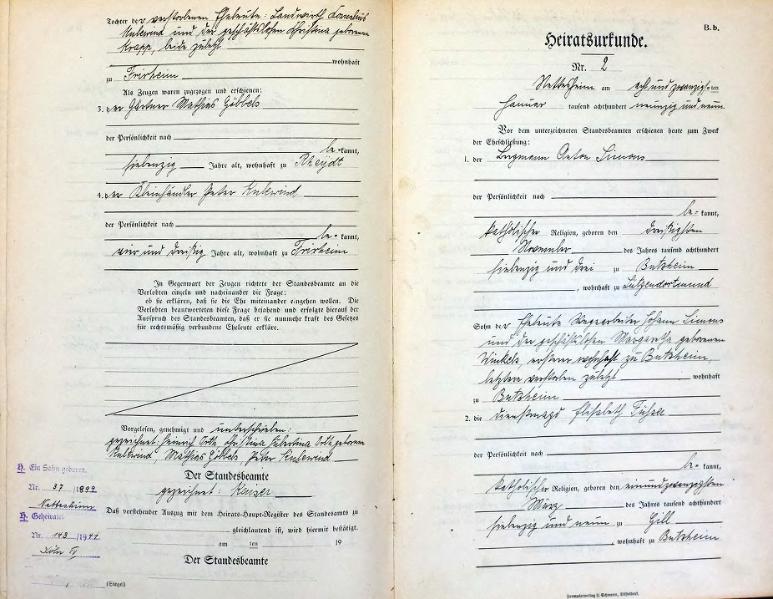 Tochter der verstorbenen Eheleute: Landwirth Cornelius
und der geschäftslosen Christina geborenen
Krapp, beide zuletzt
wohnhaft
zu Frixheim
Als Zeugen waren zugezogen und erschienen:
3. der Gärtner Mathias Göbbels
der Persönlichkeit nach
be= kannt,
siebenzig Jahre alt, wohnhaft zu Rheydt
4. der Kleinhändler Peter
der Persönlichkeit nach
be= kannt,
vier und dreißig Jahre alt, wohnhaft zu Frixheim
In Gegenwart der Zeugen richtete der Standesbeamte an die
Verlobten einzeln und nacheinander die Frage:
ob sie erklären, daß sie die Ehe miteinander eingehen wollen. Die
Verlobten beantworteten diese Frage bejahend und erfolgte hierauf der
Ausspruch des Standesbeamten, daß er sie nunmehr kraft des Gesetzes
für rechtmäßig verbundene Eheleute erkläre.
Vorgelesen, genehmigt und unterschrieben:
gezeichnet: Heinrich Orth, Christina Hubertina Orth geborene
Mathias Göbbels, Peter
Der Standesbeamte
gezeichnet: Kaiser
Daß vorstehender Auszug mit dem Heirats-Haupt-Register des Standesamts zu
gleichlautend ist, wird hiermit bestätigt.
am ten 19
Der Standesbeamte
(Siegel)
H. Ein Sohn geboren.
Nr. 37 /1899
Nettesheim
H. Geheiratet
Nr. 143 /1941
Köln
B. b.
Heiratsurkunde.
Nr. 2
Nettesheim am acht und zwanzigsten
Januar tausend achthundert neunzig und neun
Vor dem unterzeichneten Standesbeamten erschienen heute zum Zweck
der Eheschließung:
1. der Bergmann Anton Simons
der Persönlichkeit nach
be= kannt,
katholischer Religion, geboren den dreißigsten
November des Jahres tausend achthundert
siebenzig und drei zu Butzheim
, wohnhaft zu Lütgendortmund
Sohn der Eheleute Johann Simons
und der geschäftslosen Margaretha geborenen
Winkels, ersterer wohnhaft zu Butzheim,
letztere verstorben zuletzt
wohnhaft
zu Butzheim
2. die Dienstmagd Elisabeth
der Persönlichkeit nach
be= kannt,
katholischer Religion, geboren den einundzwanzigsten
März des Jahres tausend achthundert
siebenzig und neun zu Gill
, wohnhaft zu Butzheim